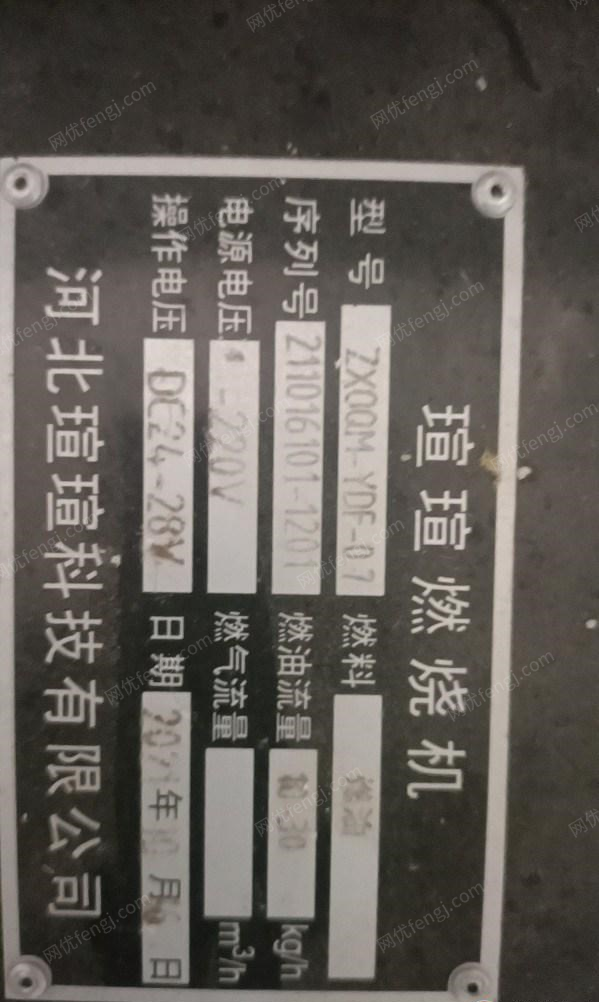 瑄瑄燃烧机
型号 ZXOQM-YDF-07 燃料
序列号 211016101-1201 燃油流量 10-30 kg/h
电源电压 -220V 燃气流量 m³/h
操作电压 DC24-28V 日期 2021年10月 日
河北瑄瑄科技有限公司
网优fengj.com